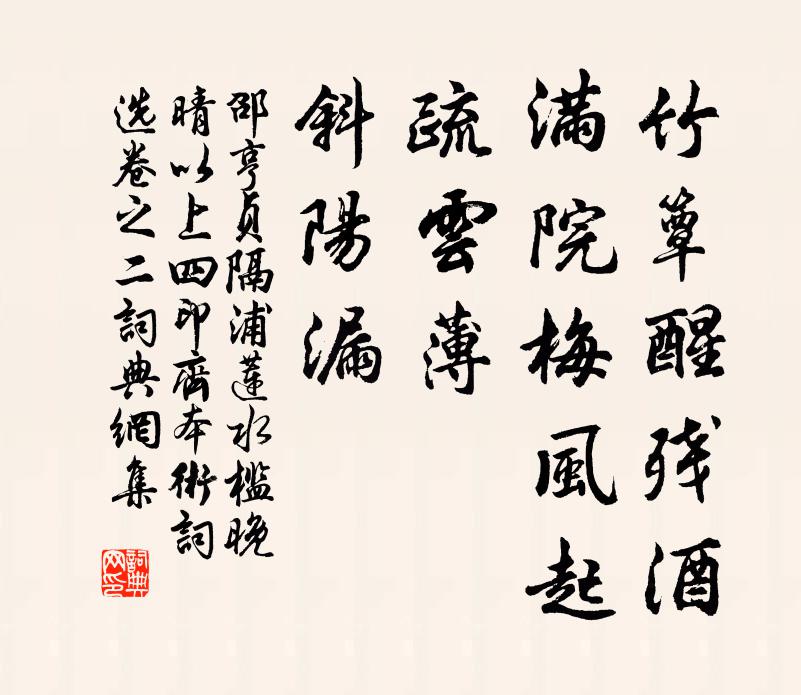 竹簟醒残酒
滿院梅風起
疏雲薄
斜陽漏
邵亨貞隔浦蓮水檻晚
晴以上四印齋本術詞
选卷之二詞典網集
詞典网印